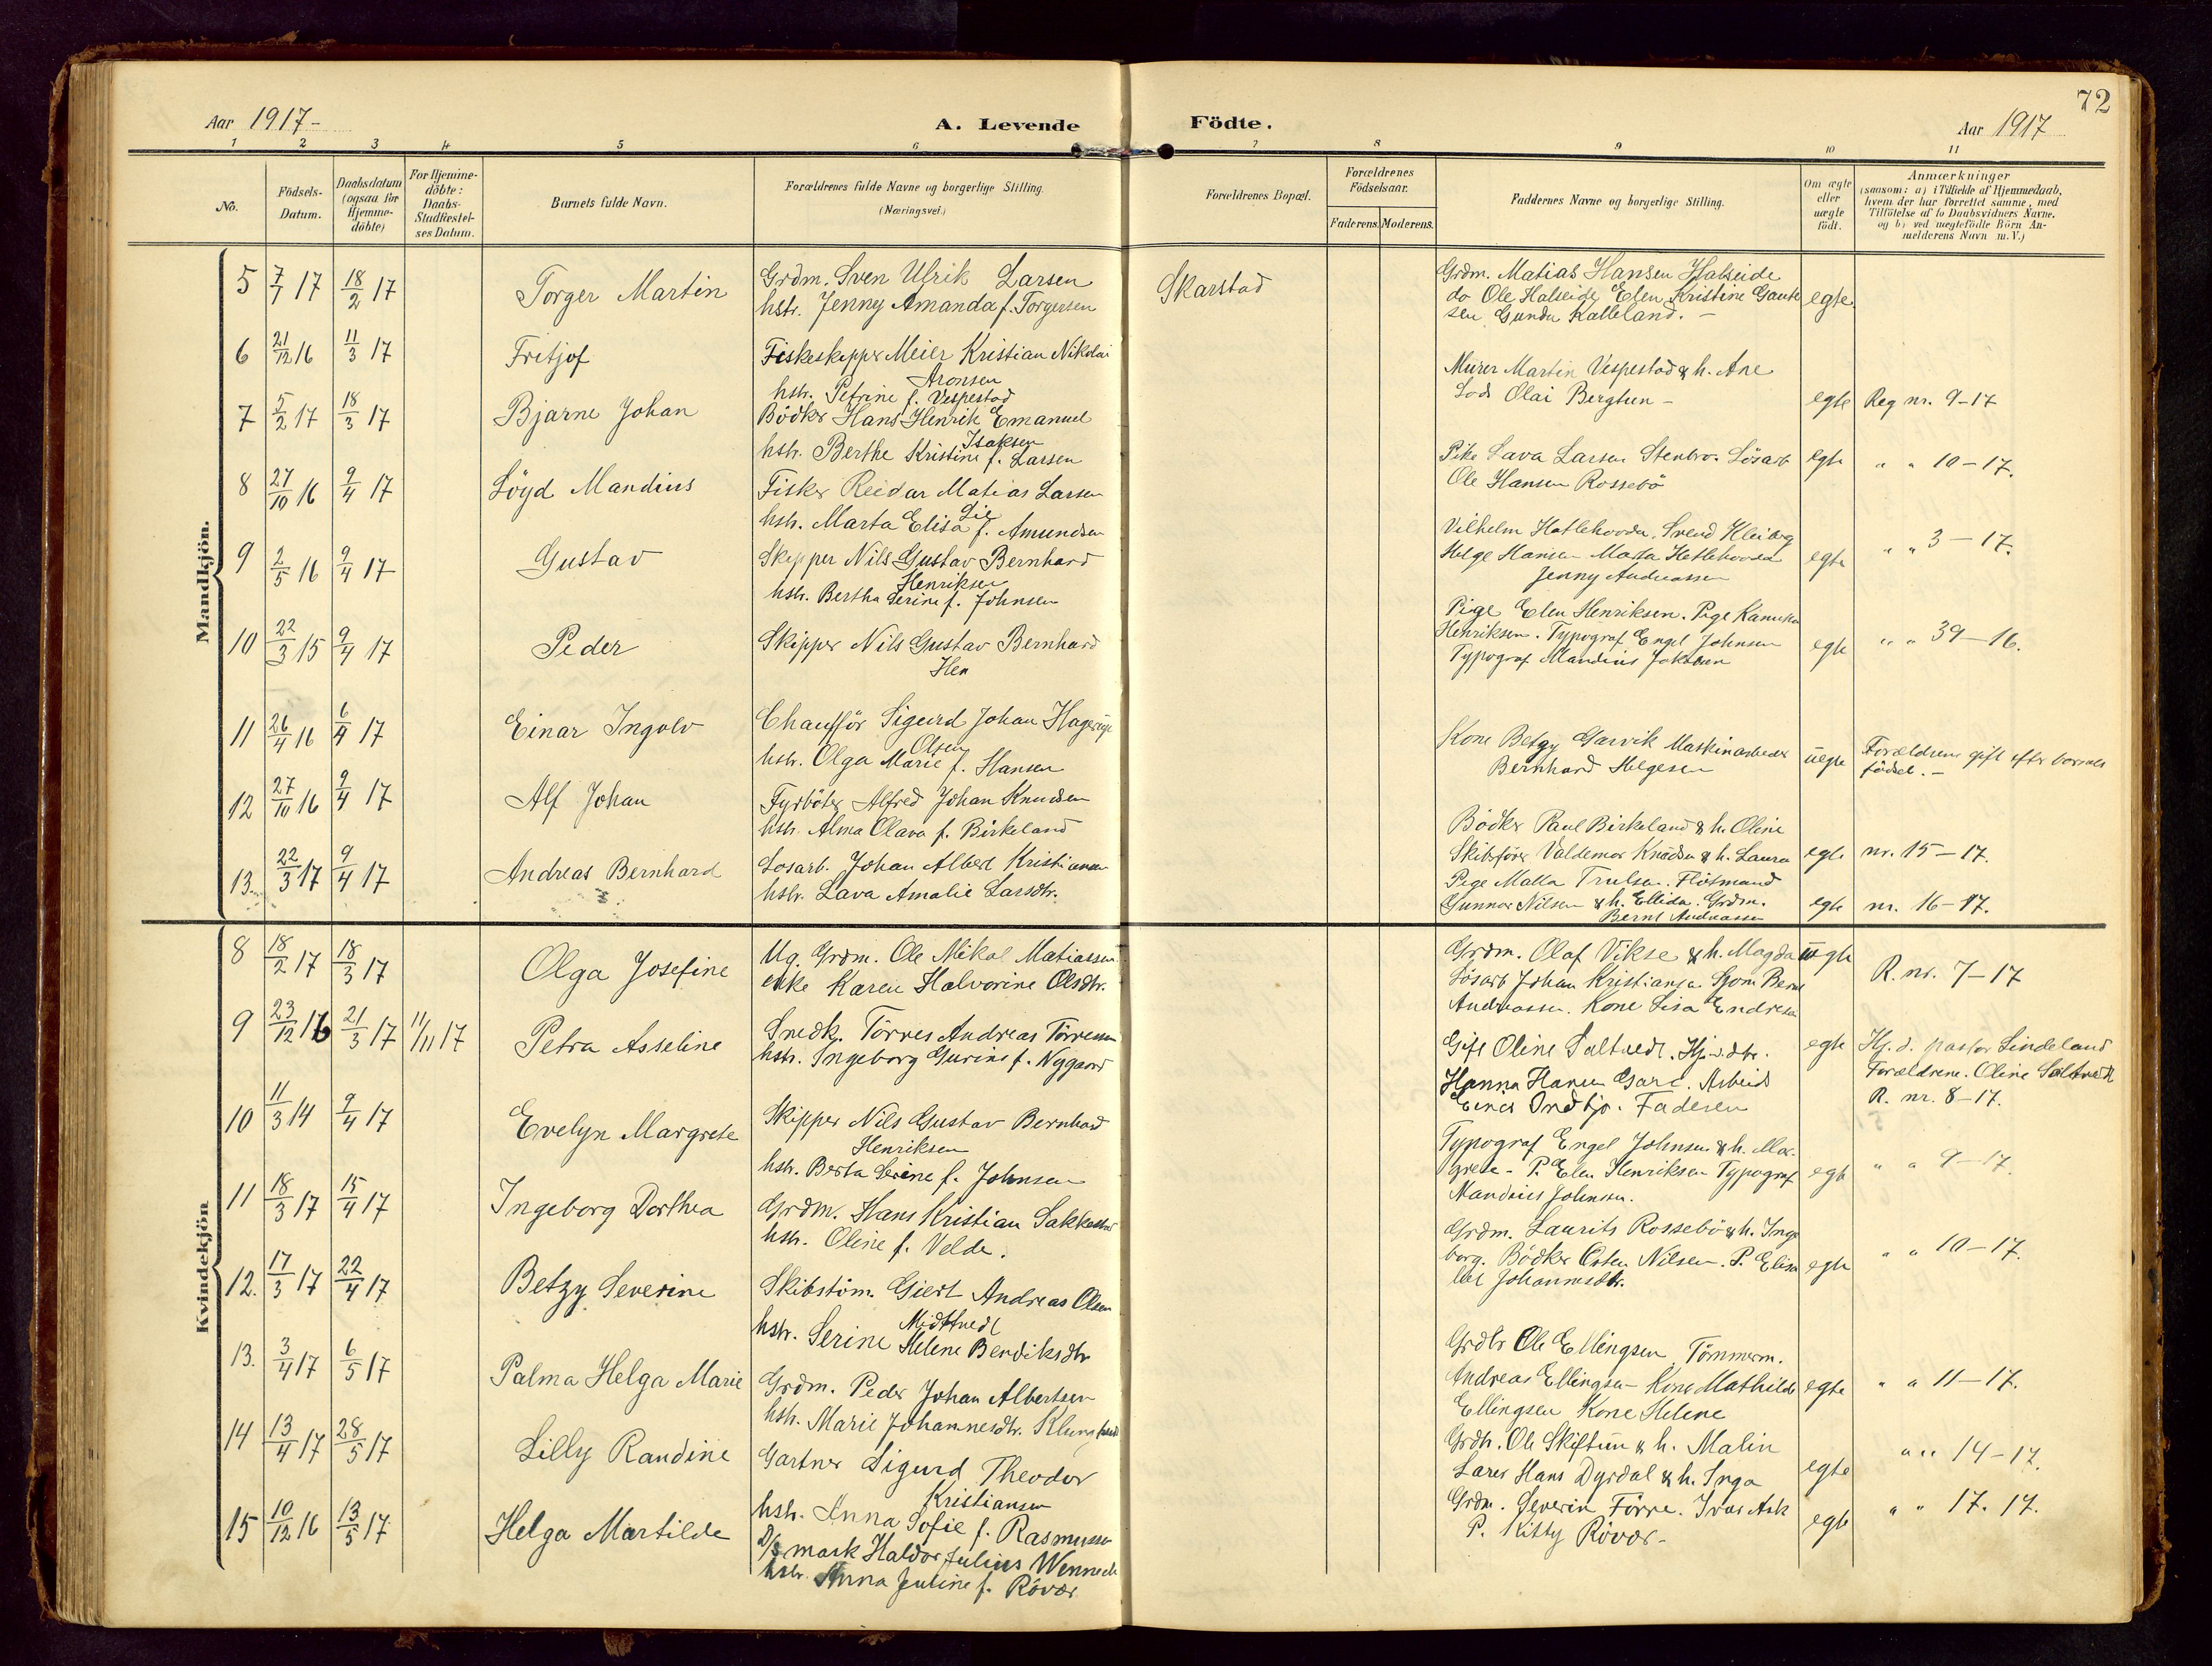 72
Aar 1917-
A. Levende Födte.
Aar 1917
1 2 3 4 5 6 7 8 9 10 11
No.
Födsels-
Datum.
Daabsdatum
(ogsaa for
Hjemme-
döbte)
For Hjemme-
döbte:
Daabs-
Stadfæstel-
ses Datum.
Barnets fulde Navn.
Forældrenes fulde Navne og borgerlige Stilling.
(Næringsvei.)
Forældrenes Bopæl.
Forældrenes
Födselsaar.
Faderens. Moderens.
Faddernes Navne og borgerlige Stilling.
Om ægte
eller
uægte
födt.
Anmærkninger
(saasom: a) i Tilfælde af Hjemmedaab,
hvem der har forrettet samme, med
Tilföielse af to Daabsvidners Navne.
og b) ved uegtefödte Börn An-
melderens Navn m. V.)
Mandkjön.
5 7/1 17 18/2 17 Torger Martin
Grdm. Sven Ulrik Larsen
hstr. Jenny Amanda f. Torgersen
Skarstad
Grdm. Matias Hansen Halseide
do Ole Halseide Elen Kristine Gaute
sen Gunda Kalleland. -
egte
6 21/12 16 11/3 17 Fritjof
Fiskeskipper Meier Kristian Nikolai
Aronsen
hstr. Petrine f. Vespestad
Murer Martin Vespestad & h. Ane
Lods Olai Bergtun -
egte Reg nr. 9-17
7 5/2 17 18/3 17 Bjarne Johan
Bödker Hans Henrik Emanuel
Isaksen
hstr. Berthe Kristine f. Larsen
Pike Lava Larsen Stenbro. Lösarb
Ole Hansen Rossebö
egte " " 10-17.
8 27/10 16 9/4 17 Löyd Mandius
Fisker Reidar Matias Larsen
Lie
hstr. Marta Elisa f. Amundsen
Vilhelm Hatlehovda, Svend Kleiberg
Helge Hansen Marta Hetlehovda
Jenny Andreassen
egte " " 3-17.
9 2/5 16 9/4 17 Gustav
Skipper Nils Gustav Bernhard
Henriksen
hstr. Bertha Serine f. Johnsen
Pige Elen Henriksen. Pige
Henriksen. Typograf Engel Johnsen
Typograf Mandius
egte " " 39-16.
10 22/3 15 9/4 17 Peder
Skipper Nils Gustav Bernhard
Hen
11 26/4 16 6/4 17 Einar Ingolv
Chaufför Sigurd Johan
Olsen
hstr. Olga Marie f. Hansen
Kone Betzy Garvik Maskinarbeider
Bernhard Helgesen
uegte Forældrene gift efter barnets
födsel. -
12 27/10 16 9/4 17 Alf Johan
Fyrböter Alfred Johan Knudsen
hstr. Alma Olava f. Birkeland
Bödker Paul Birkeland & h. Oline
Skibsförer Valdemar Knudsen & h. Laura
egte nr. 15-17.
13. 22/3 17 9/4 17 Andreas Bernhard
Losarb. Johan Albert Kristiansen
hstr. Lava Amalie Larsdtr.
Pige Malla Trulsen. Flötmand
Gunnar Nilsen & h. Ellida. Grdm.
Bernt Andreassen
egte nr. 16-17.
Kvindekjön
8 18/2 17 18/3 17 Olga Josefine
Ug. Grdm. Ole Mikal Matiassen
enke Karen Halvorine Olsdtr.
Grdm. Olaf Vikse & h. Magda
Lösarb Johan Kristiansen Sjom Bernt
Andreassen. Kone Lisa Endresen
uegte R. nr. 7-17
9 23/12 16 21/3 17 11/11 17 Petra Asseline
Snedk. Törres Andreas Törressen
hstr. Ingeborg Gurine f. Nygaard
Gift Oline Saltvedt. Hj. v. dtr.
Hanna Hansen Gard. Arbeids
Einar Ordbjo. Faderen
egte Hj. d. pastor Lindeland
Forældrene. Oline Saltvedt
R. nr. 8-17.
10 11/3 14 9/4 17 Evelyn Margrete
Skipper Nils Gustav Bernhard
Henriksen
hstr. Berta Serine f. Johnsen
Typograf Engel Johnsen & h. Mar-
grete - P. Elen Henriksen Typograf
Mandius Johnsen.
egte " " 9-17.
11 18/3 17 15/4 17 Ingeborg Dorthea
Grdm. Hans Kristian Sakkastad
hstr. Oline f. Velde.
Grdm. Laurits Rossebö & h. Inge
borg. Bödker Osten Nilsen. P. Elisa
bet Johannesdtr.
egte " " 10-17.
12. 17/3 17 22/4 17 Betzy Severine
Skibstöm. Giert Andreas Olsen
Midttvedt
hstr. Serine Helene Bendiksdtr
Grdbr Ole Ellingsen Tömmerm.
Andreas Ellingsen - Kone Mathilde
Ellingsen Kone Helene
egte " " 11-17.
13. 3/4 17 6/5 17 Palma Helga Marie
Grdm. Peder Johan Albertsen
hstr. Marie Johannesdtr.
Grdbr. Ole Skiftun & h. Malin
Lærer Hans Dyrdal & h. Inga
egte " " 14-17.
14 13/4 17 28/5 17 Lilly Randine
Gartner Sigurd Theodor
Kristiansen
hstr. Anna Sofie f. Rasmussen
Grdm. Severin Förre. Ivar Ask
P. Kitty Rövær -
egte " " 17-17.
15 10/12 16 13/5 17 Helga Martilde
D/S mask Haldor Julius
hstr. Anna Juline f. Rövær